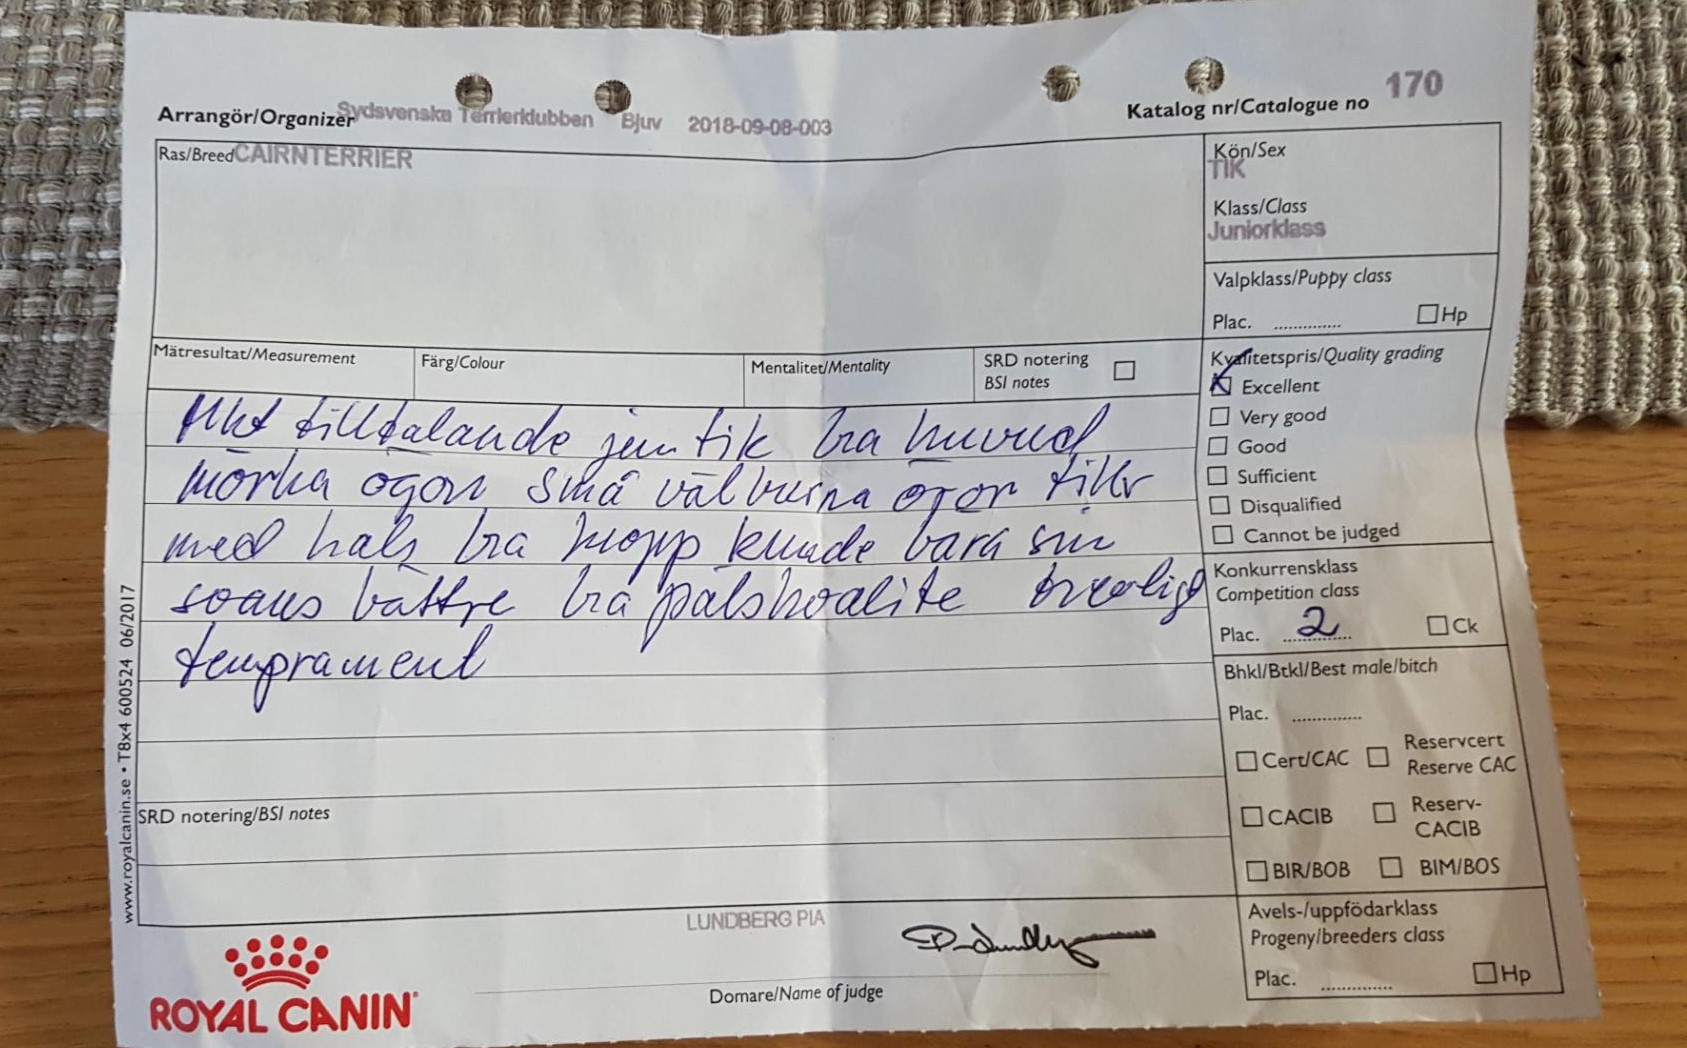 Arrangör/Organizer Sydsvenska Terrierklubben Bjuv 2018-09-08-003
Katalog nr/Catalogue no 170
Ras/Breed CAIRNTERRIER
Kön/Sex
TIK
Klass/Class
Juniorklass
Valpklass/Puppy class
Plac. .............. Hp
Mätresultat/Measurement
Färg/Colour
Mentalitet/Mentality
SRD notering
BSI notes
Mkt tilltalande jun tik bra huvud
mörka ögon små välburna öron tillr
med hals bra kropp kunde bära sin
svans bättre bra pälskvalite trevligt
temprament
SRD notering/BSI notes
Kvalitetspris/Quality grading
Excellent
Very good
Good
Sufficient
Disqualified
Cannot be judged
Konkurrensklass
Competition class
Plac. 2 Ck
Bhkl/Btkl/Best male/bitch
Plac. ..............
Cert/CAC
Reservcert
Reserve CAC
CACIB
Reserv-
CACIB
BIR/BOB
BIM/BOS
Avels-/uppfödarklass
Progeny/breeders class
Plac. .............. Hp
LUNDBERG PIA
Domare/Name of judge
ROYAL CANIN
www.royalcanin.se • T8x4 600524 06/2017